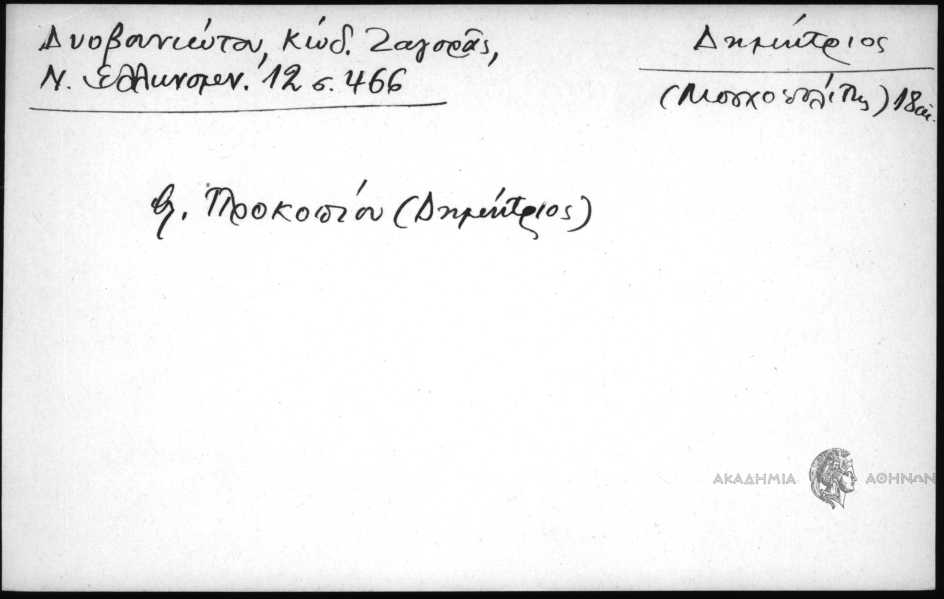 Δυοβουνιώτου, Κώδ. Ζαγορᾶς,
Ν. Ἑλληνομν. 12 σ. 466
Δημήτριος
(Μοσχοπολίτης) 18 αἰ.
βλ. Προκοπίου (Δημήτριος)
ΑΚΑΔΗΜΙΑ ΑΘΗΝΩΝ